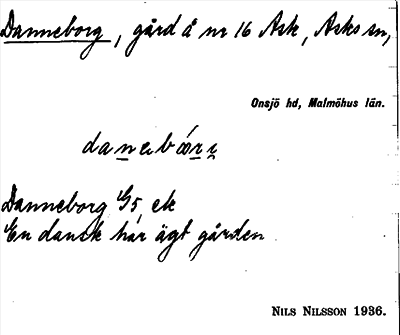 Danneborg, gård å nr 16 Ask, Asks sn,
Onsjö hd, Malmöhus län.
Danneborg G5 ek
En dansk har ägt gården
NILS NILSSON 1936.